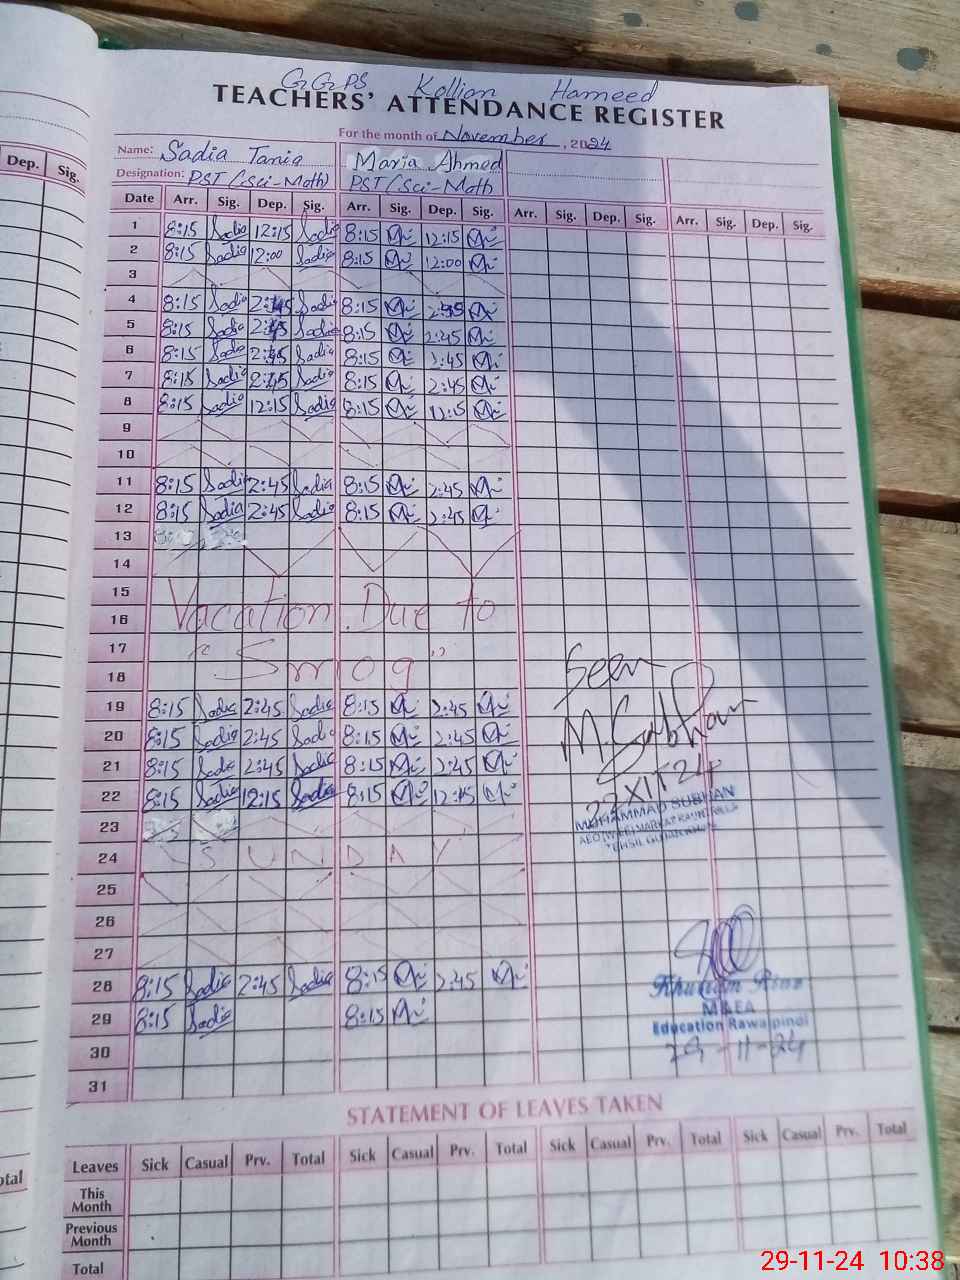 GGPS Kollian Hameed
TEACHERS' ATTENDANCE REGISTER
For the month of November, 2024
Name: Sadia Tania Maria Ahmed
Designation: PST (Sci-Math) PST (Sci-Math
Dep. Sig.
Date Arr. Sig. Dep. Sig. Arr. Sig. Dep. Sig. Arr. Sig. Dep. Sig. Arr. Sig. Dep. Sig.
1 8:15 Sadia 12:15 Sadia 8:15 12:15
2 8:15 Sadia 12:00 Sadia 8:15 12:00
3
4 8:15 Sadia 2:45 Sadia 8:15 2:45
5 8:15 Sadia 2:45 Sadia 8:15 2:45
6 8:15 Sadia 2:45 Sadia 8:15 2:45
7 8:15 Sadia 2:45 Sadia 8:15 2:45
8 8:15 Sadia 12:15 Sadia 8:15 12:15
9
10
11 8:15 Sadia 2:45 Sadia 8:15 2:45
12 8:15 Sadia 2:45 Sadia 8:15 2:45
13
14
15
16 Vacation Due to
17
18 "Smog"
Seen
19 8:15 Sadia 2:45 Sadia 8:15 2:45
20 8:15 Sadia 2:45 Sadia 8:15 2:45
M. Subhan
21 8:15 Sadia 2:45 Sadia 8:15 2:45
22 8:15 Sadia 12:15 Sadia 8:15 12:15
22 XII 24
MUHAMMAD SUBHAN
23
24 SUNDAY
25
26
27
28 8:15 Sadia 2:45 Sadia 8:15 2:45
29 8:15 Sadia 8:15
M&EA
Education Rawalpindi
29-11-24
30
31
STATEMENT OF LEAVES TAKEN
Leaves Sick Casual Prv. Total Sick Casual Prv. Total Sick Casual Prv. Total Sick Casual Prv. Total
This Month
Previous Month
Total
29-11-24 10:38